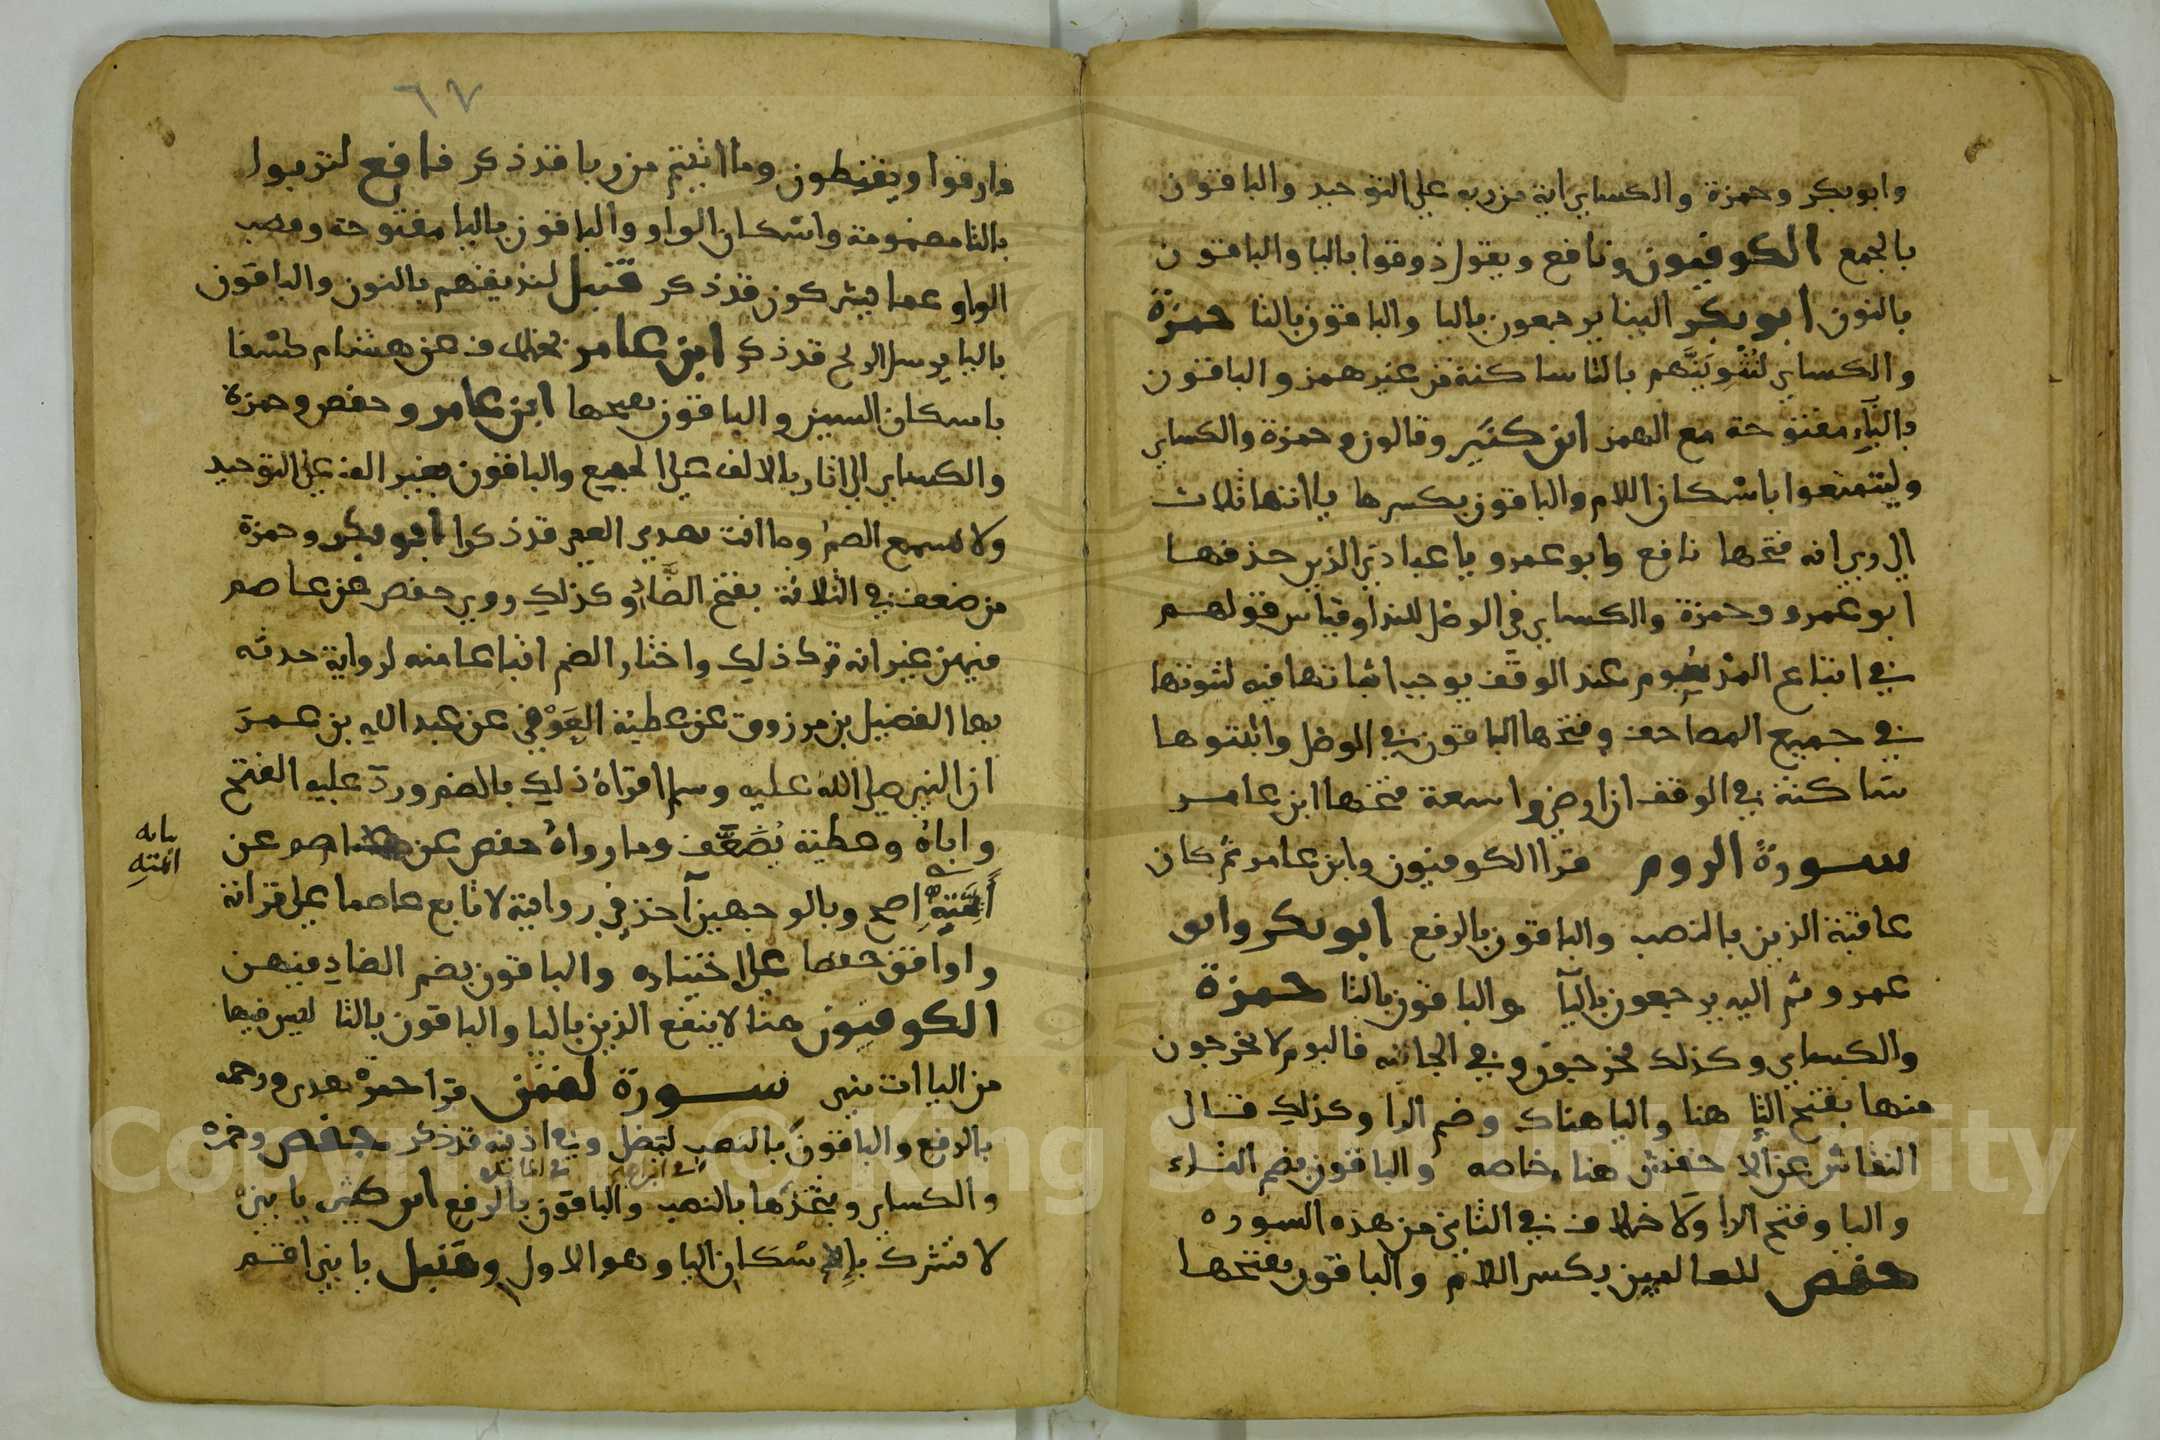 وابوبكر وحمزة والكساىي اية من ربه علي التوحيد والباقون
بالجمع الكوفيون ونافع ويقول ذوقوا باليا والباقون
بالنون ابو بكر الينا يرجعون باليا والباقون بالتا حمزة
والكساىي لنثوينهم بالثا ساكنة من غير همز والباقون
بالبآء مفتوحة مع الهمز ابن كثير وقالون وحمزة والكساىي
وليتمتعوا باسكان اللام والباقون بكسرها يااتها ثلاث
الي ربي انه فتحها نافع وابو عمرو يا عبادي الذين حذفها
ابو عمرو وحمزة والكساىي في الوصل للندا وقياس قولهم
في اتباع المرسوم عند الوقف يوجب اثباتها فيه لثبوتها
في جميع المصاحف وفتحها الباقون في الوصل واثبتوها
ساكنة في الوقف ان ارضي واسعة فتحها ابن عامر
سورة الروم قرا الكوفيون وابن عامر ثم كان
عاقبة الذين بالنصب والباقون بالرفع ابو بكر وابو
عمرو ثم اليه يرجعون باليآ والباقون بالتا حمزة
والكساىي وكذلك تخرجون وفي الجاثيه فاليوم لا يخرجون
منها بفتح التا هنا واليا هناك وضم الرا وكذلك قال
النقاش عن الاخفش هنا خاصه والباقون بضم التاء
واليا وفتح الرا ولا خلاف في الثاني من هذه السوره
حفص للعالمين بكسر اللام والباقون بفتحها
٦٧
فارقوا ويقنطون وما اتيتم من ربا قد ذكر نافع لتربوا
بالتا مضمومة واسكان الواو والباقون باليا مفتوحة ونصب
الواو عما يشركون قد ذكر قنبل لنذيقهم بالنون والباقون
باليا يرسل الريح قد ذكر ابن عامر بخلاف عن هشام كسفا
باسكان السين والباقون بفتحها ابن عامر وحفص وحمزة
والكساىي الي اثار بالالف علي الجميع والباقون بغير الف علي التوحيد
ولا تسمع الصم وما انت بهدي العمي قد ذكرا ابو بكر وحمزة
من ضعف في الثلاثة بفتح الضاد وكذلك روي حفص عن عاصم
فيهن غير انه ترك ذلك واختار الضم اتباعا منه لرواية حدثه
بها الفضيل بن مرزوق عن عطية العوفي عن عبد الله بن عمر
ان النبي صلي الله عليه وسلم اقراه ذلك بالضم ورد عليه الفتح
واباه وعطية يضعف وما رواه حفص عن عاصم عن
ائمته اصح وبالوجهين آخذ في روايته لاتابع عاصما علي قرآته
واوافق حفصا علي اختياره والباقون بضم الضاد فيهن
الكوفيون هنا لا ينفع الذين باليا والباقون بالتا ليس فيها
من الياات شي سورة لقمن قرا حمزة هدي ورحمه
بالرفع والباقون بالنصب ليضل وفي اذنيه قد ذكر حفص وحمزه
والكساىي ويتخذها بالنصب والباقون بالرفع ابن كثير يا بني
لا تشرك باسكان اليا وهو الاول وقنبل يا بني اقم
بيانه
ائمته